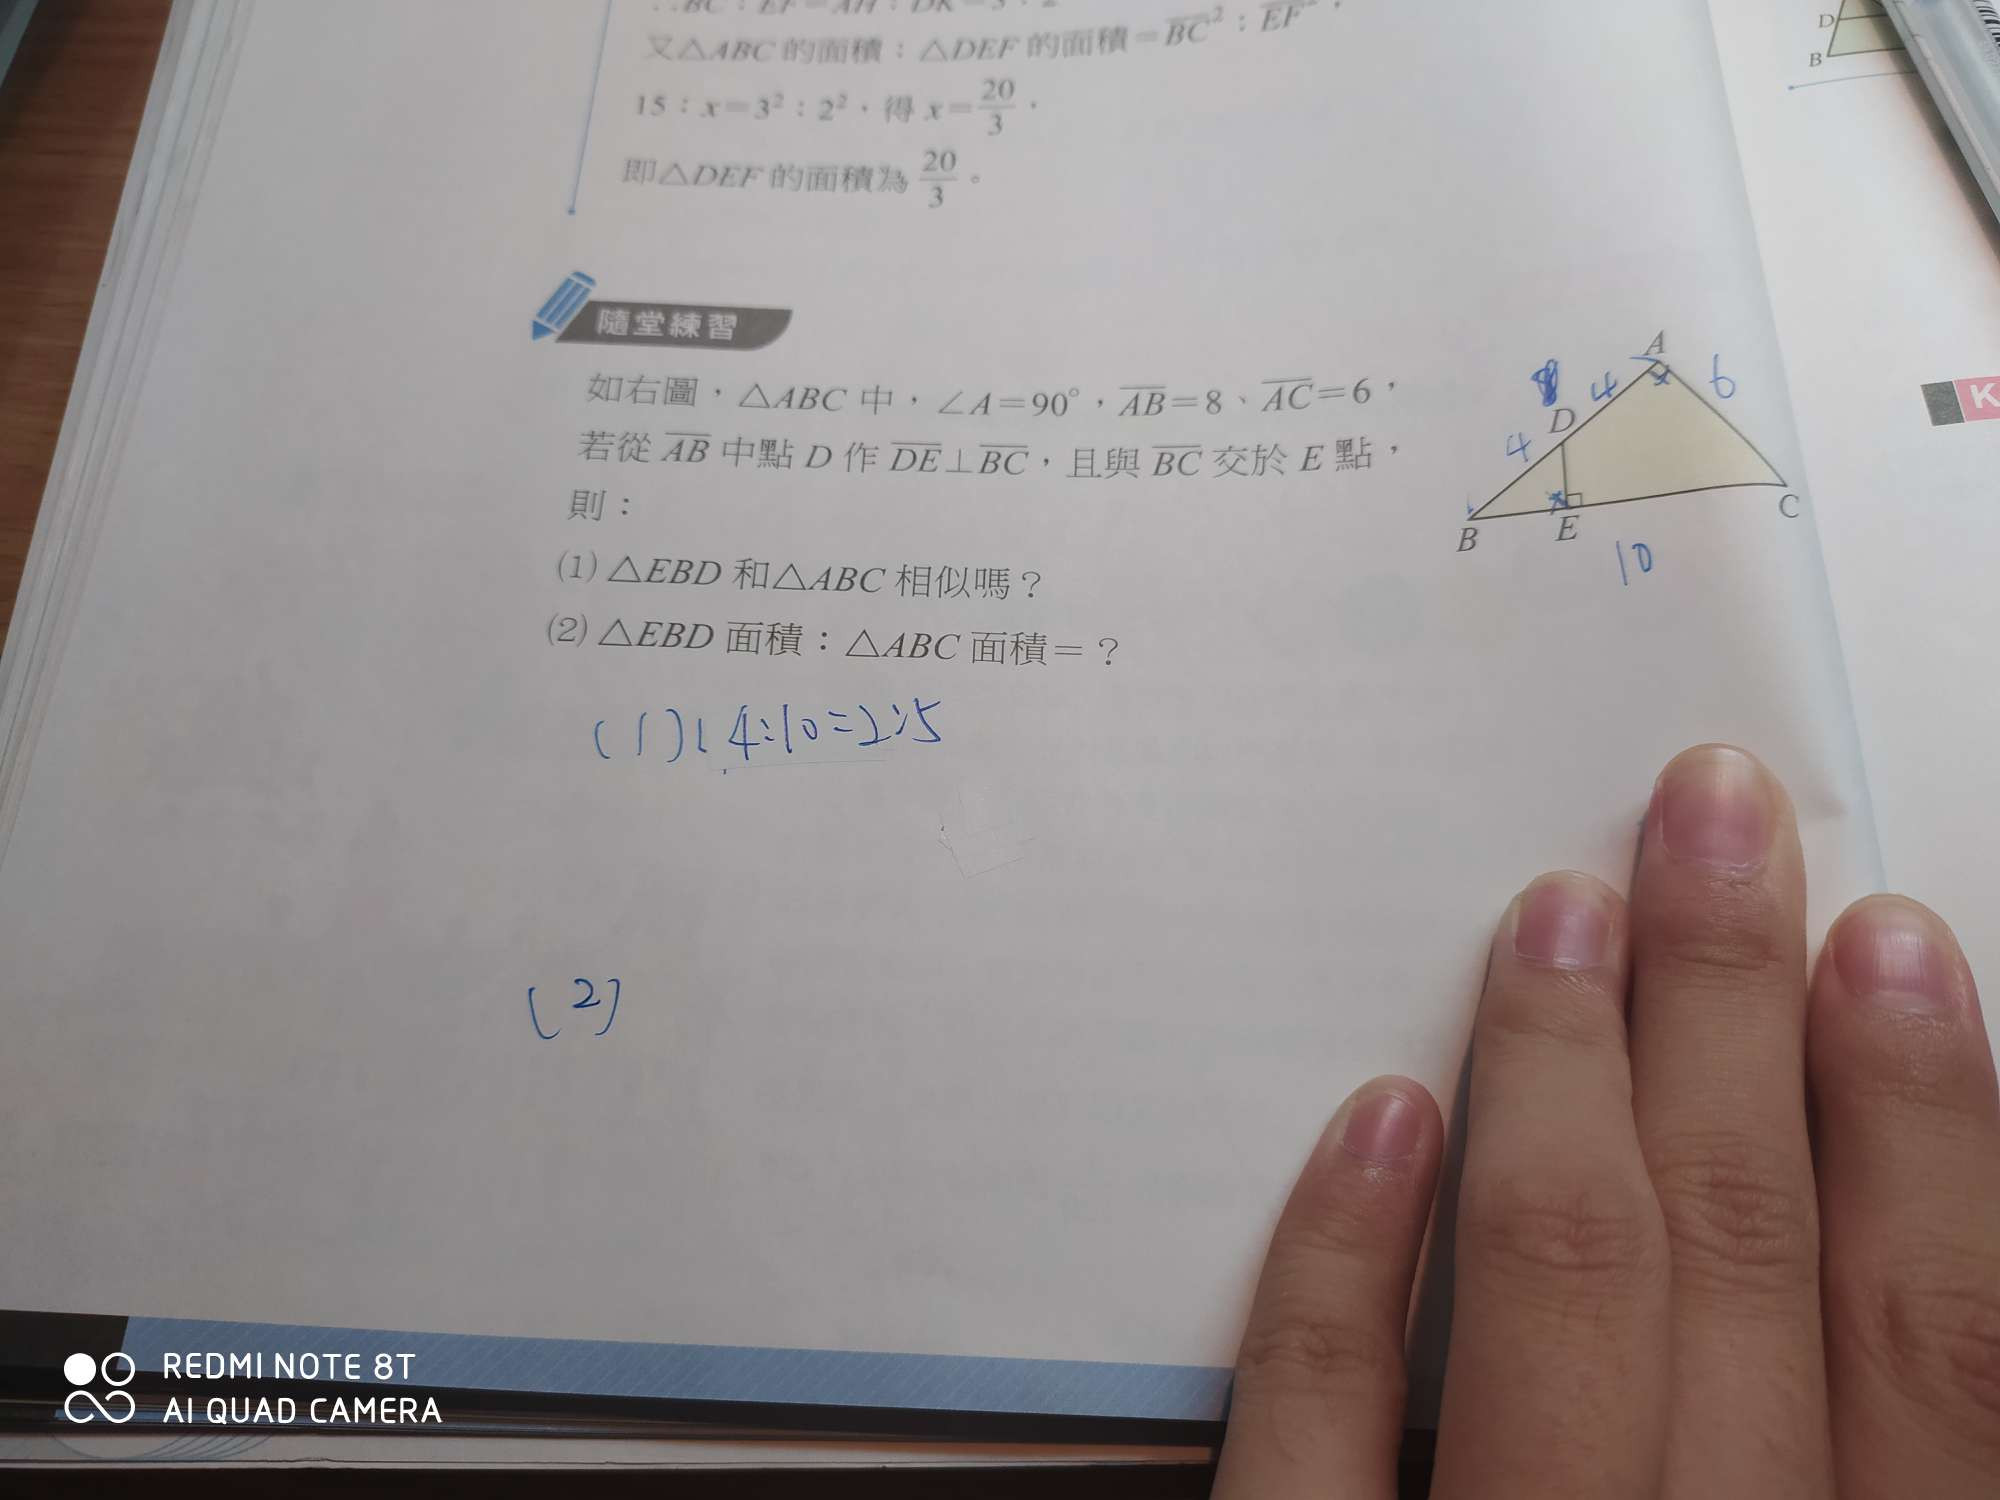 ∴BC：EF＝AH：DK＝3：2
又△ABC 的面積：△DEF 的面積＝BC²：EF²，
15：x＝3²：2²，得 x＝20/3，
即△DEF 的面積為 20/3。
隨堂練習
如右圖，△ABC 中，∠A＝90°，AB＝8、AC＝6，
若從 AB 中點 D 作 DE⊥BC，且與 BC 交於 E 點，
則：
(1) △EBD 和△ABC 相似嗎？
(2) △EBD 面積：△ABC 面積＝？
A
6
4
D
4
B
E
C
10
(1) 4:10=2:5
(2)
D
B
K
REDMI NOTE 8T
AI QUAD CAMERA